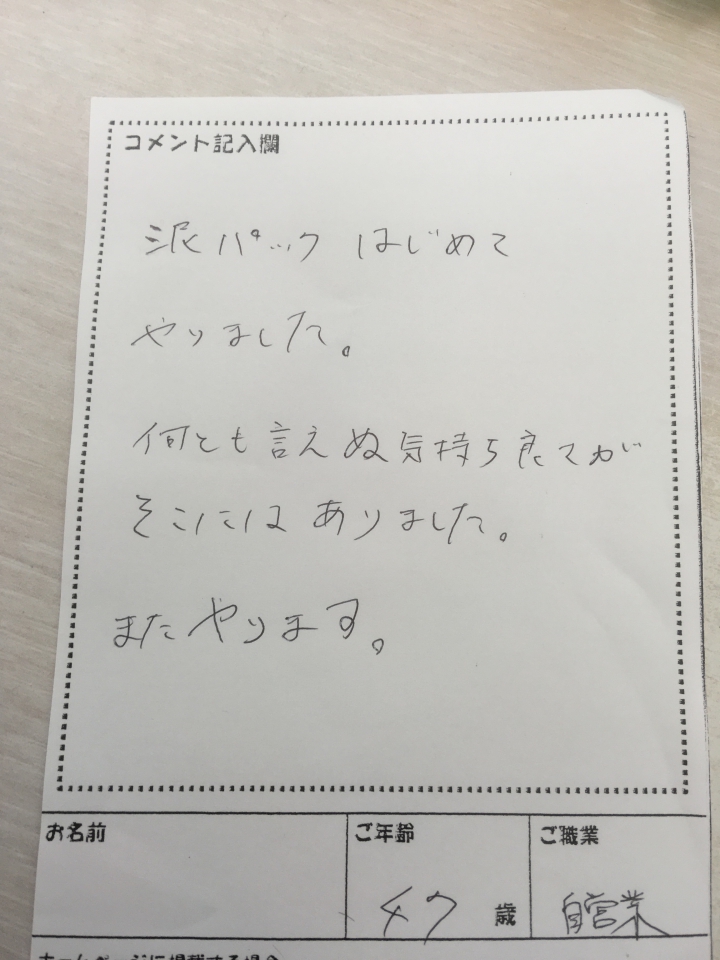 コメント記入欄
泥パック はじめて
やりました。
何とも言えぬ気持ち良さが
そこにはありました。
またやります。
お名前 ご年齢 ご職業
47 歳 自営業
ホームページに掲載する場合